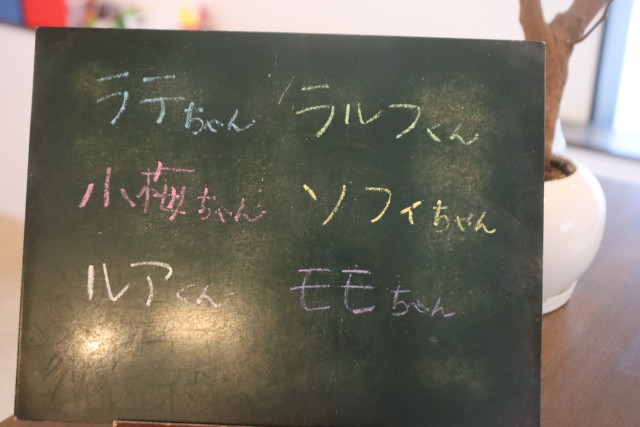 ラテちゃん ラルフくん
小梅ちゃん ソフィちゃん
ルアくん モモちゃん